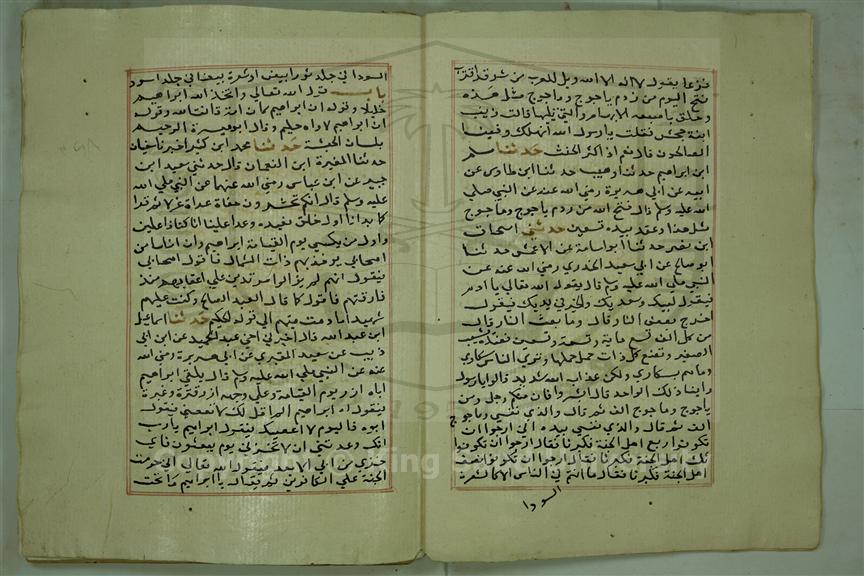 فزعا يقول لا اله الا الله ويل للعرب من شر قد اقترب
فتح اليوم من ردم ياجوج وماجوج مثل هذه
وحلق باصبعه الابهام والتي تليها قالت زينب
ابنة جحش فقلت يا رسول الله انهلك وفينا
الصالحون قال نعم اذا كثر الخبث حدثنا مسلم
ابن ابراهيم حدثنا وهيب حدثنا ابن طاوس عن
ابيه عن ابي هريرة رضي الله عنه عن النبي صلي
الله عليه وسلم قال فتح الله من ردم ياجوج وماجوج
مثل هذا وعقد بيده تسعين حدثني اسحاق
ابن نصر حدثنا ابو اسامة عن الاعمش حدثنا
ابو صالح عن ابي سعيد الخدري رضي الله عنه عن
النبي صلي الله عليه وسلم قال يقول الله تعالي يا ادم
فيقول لبيك وسعديك والخير في يديك فيقول
اخرج بعث النار قال وما بعث النار قال
من كل الف تسع ماية وتسعة وتسعين فعنده يشيب
الصغير وتضع كل ذات حمل حملها وتري الناس سكاري
وما هم بسكاري ولكن عذاب الله شديد قالوا يا رسول
واينا ذلك الواحد قال ابشروا فان منكم رجل ومن
ياجوج وماجوج الف ثم قال والذي نفسي
الف ثم قال والذي نفسي بيده اني ارجوا ان
تكونوا ربع اهل الجنة فكبرنا فقال ارجوا ان تكونوا
ثلث اهل الجنة فكبرنا فقال ارجوا ان تكونوا نصف
اهل الجنة فكبرنا فقال ما انتم في الناس الا كالشعرة
السودا
السودا في جلد ثور ابيض او شعرة بيضا في جلد اسود
باب قول الله تعالي واتخذ الله ابراهيم
خليلا وقوله ان ابراهيم كان امة قانتا لله وقوله
ان ابراهيم لاواه حليم وقال ابو ميسرة الرحيم
بلسان الحبشة حدثنا محمد ابن كثير اخبرنا سفيان
حدثنا المغيرة ابن النعمان قال حدثني سعيد ابن
جبير عن ابن عباس رضي الله عنهما عن النبي صلي الله
عليه وسلم قال انكم تحشرون حفاة عراة غرلا ثم قرا
كما بدانا اول خلق نعيده وعدا علينا انا كنا فاعلين
واول من يكسي يوم القيامة ابراهيم وان اناسا من
اصحابي يوخذ بهم ذات الشمال فاقول اصحابي
فيقول انهم لم يزالوا مرتدين علي اعقابهم منذ
فارقتهم فاقول كما قال العبد الصالح وكنت عليهم
شهيدا ما دمت فيهم الي قوله الحكيم حدثنا اسماعيل
ابن عبد الله قال اخبرني اخي عبد الحميد عن ابن ابي
ذيب عن سعيد المقبري عن ابي هريرة رضي الله
عنه عن النبي صلي الله عليه وسلم قال يلقي ابراهيم
اباه ازر يوم القيامة وعلي وجه ازر قترة وغبرة
فيقول له ابراهيم الم اقل لك لا تعصني فيقول
ابوه فاليوم لا اعصيك فيقول ابراهيم يا رب
انك وعدتني ان لا تخزني يوم يبعثون فاي
خزي من ابي الابعد فيقول الله تعالي اني حرمت
الجنة علي الكافرين ثم يقال يا ابراهيم ما تحت